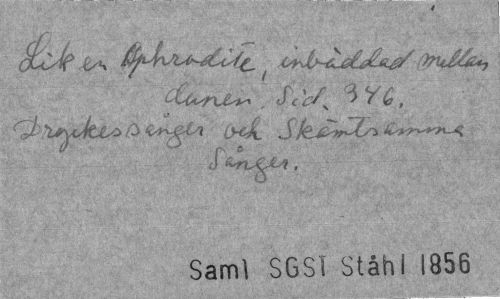 Lik en Aphrodite, inbäddad mellan
dunen. Sid. 346.
Dryckessånger och Skämtsamma
Sånger.
Saml SGST Ståhl 1856